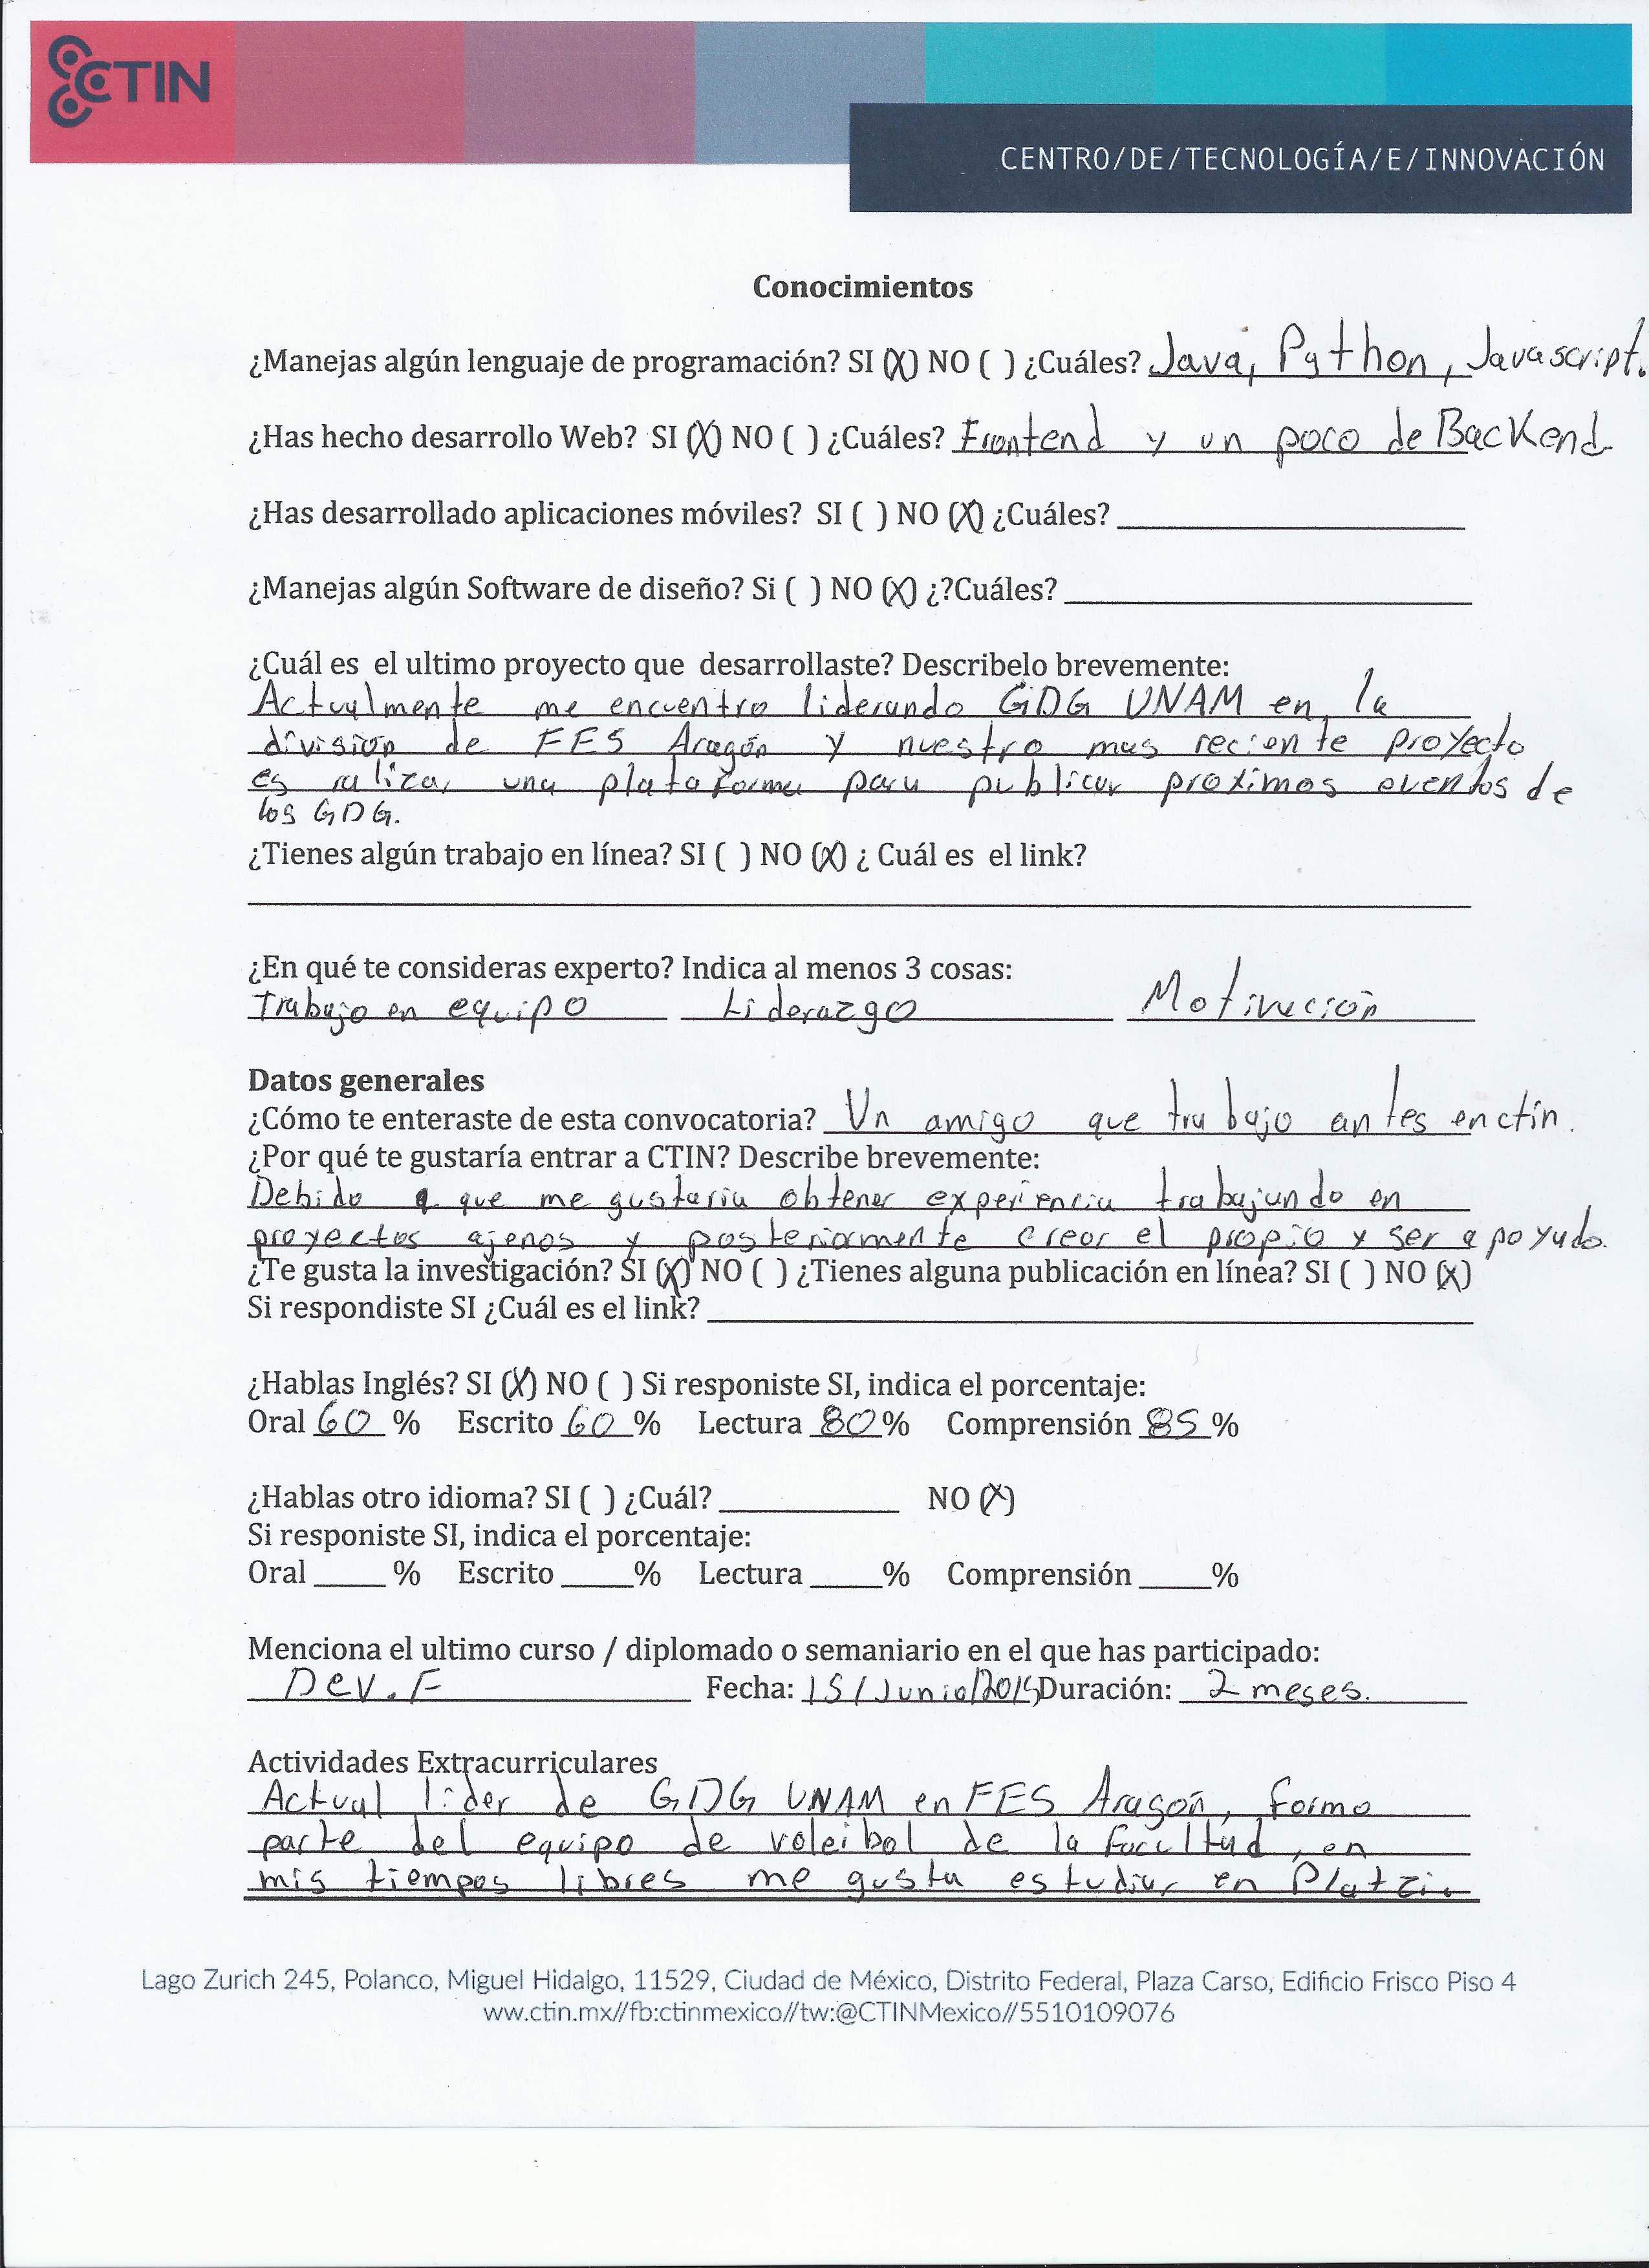 CTIN
CENTRO/DE/TECNOLOGÍA/E/INNOVACIÓN
Conocimientos
¿Manejas algún lenguaje de programación? SI (X) NO ( ) ¿Cuáles? Java, Python, Javascript.
¿Has hecho desarrollo Web? SI (X) NO ( ) ¿Cuáles? Frontend y un poco de Backend
¿Has desarrollado aplicaciones móviles? SI ( ) NO (X) ¿Cuáles? ____
¿Manejas algún Software de diseño? Si ( ) NO (X) ¿?Cuáles? ____
¿Cuál es el ultimo proyecto que desarrollaste? Describelo brevemente:
Actualmente me encuentro liderando GDG UNAM en la
división de FES Aragón y nuestro mas reciente proyecto
es realizar una plataforma para publicar proximos eventos de
los GDG.
¿Tienes algún trabajo en línea? SI ( ) NO (X) ¿ Cuál es el link?
¿En qué te consideras experto? Indica al menos 3 cosas:
Trabajo en equipo Liderazgo Motivación
Datos generales
¿Cómo te enteraste de esta convocatoria? Un amigo que trabajo antes en ctin.
¿Por qué te gustaría entrar a CTIN? Describe brevemente:
Debido a que me gustaria obtener experiencia trabajando en
proyectos ajenos y posteriormente crear el propio y ser apoyado.
¿Te gusta la investigación? SI (X) NO ( ) ¿Tienes alguna publicación en línea? SI ( ) NO (X)
Si respondiste SI ¿Cuál es el link? ____
¿Hablas Inglés? SI (X) NO ( ) Si responiste SI, indica el porcentaje:
Oral 60 % Escrito 60 % Lectura 80 % Comprensión 85 %
¿Hablas otro idioma? SI ( ) ¿Cuál? ____ NO (X)
Si responiste SI, indica el porcentaje:
Oral ____ % Escrito ____% Lectura ____% Comprensión ____%
Menciona el ultimo curso / diplomado o semaniario en el que has participado:
Dev.F Fecha: 15/Junio/2015 Duración: 2 meses.
Actividades Extracurriculares
Actual líder de GDG UNAM en FES Aragón, formo
parte del equipo de voleibol de la facultad, en
mis tiempos libres me gusta estudiar en Platzi.
Lago Zurich 245, Polanco, Miguel Hidalgo, 11529, Ciudad de México, Distrito Federal, Plaza Carso, Edificio Frisco Piso 4
ww.ctin.mx//fb:ctinmexico//tw:@CTINMexico//5510109076